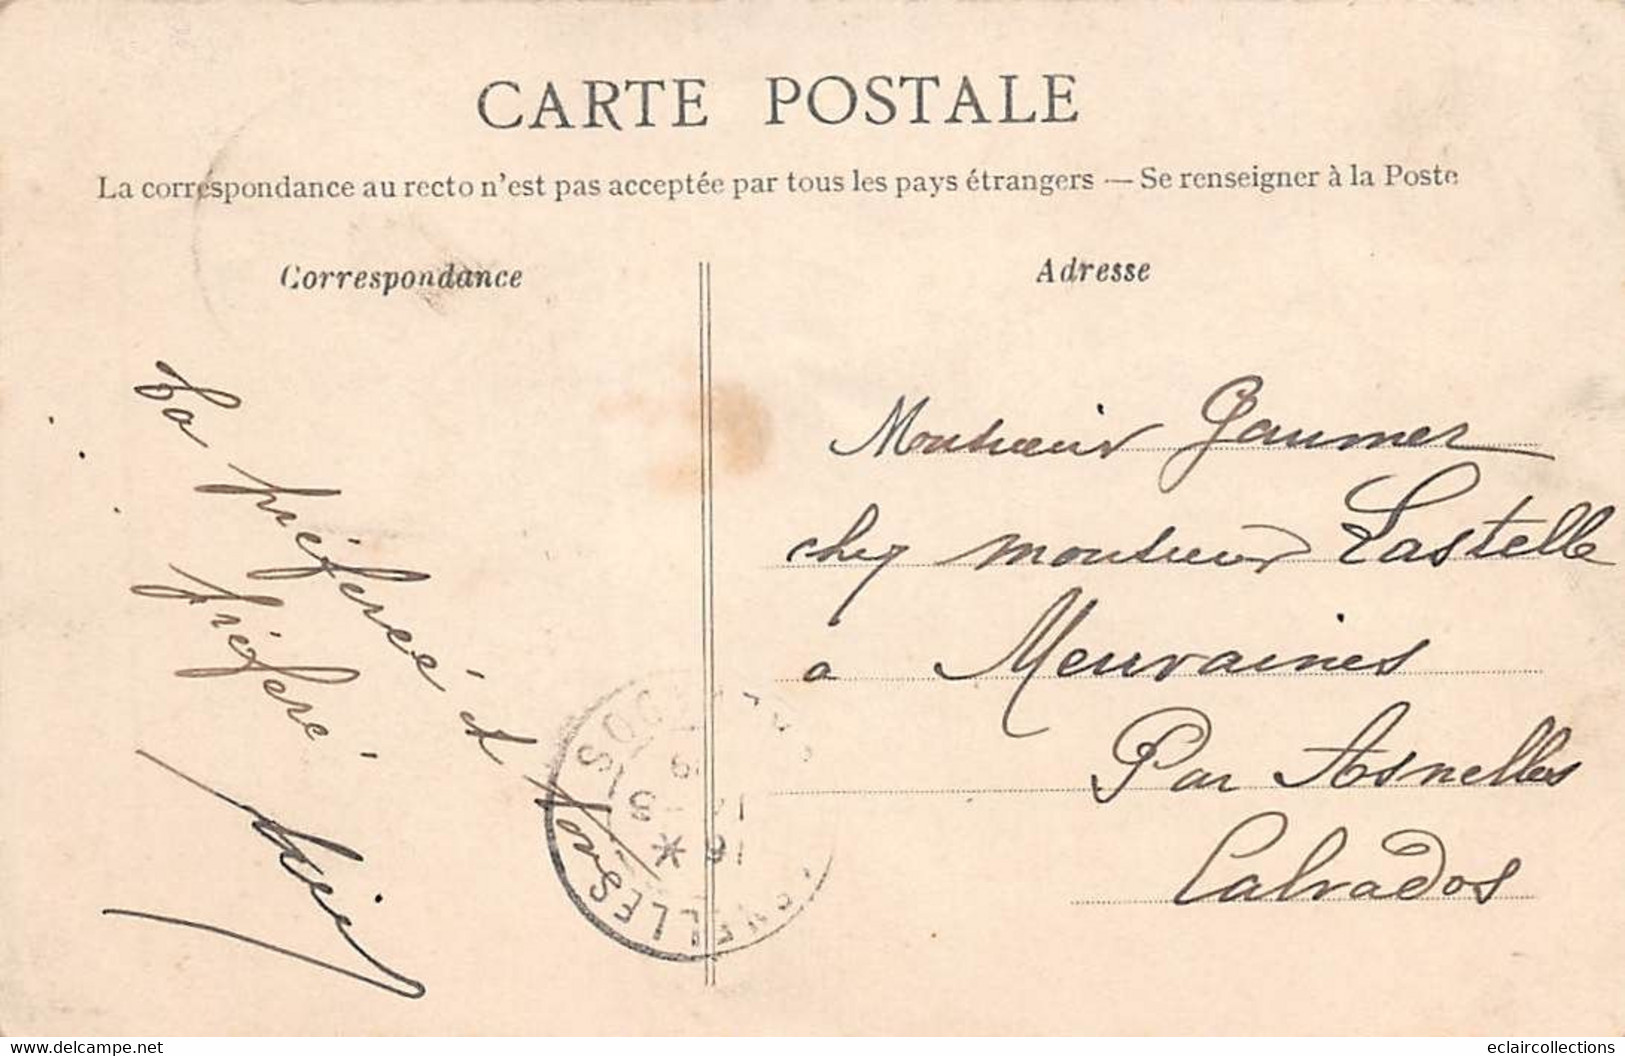 CARTE POSTALE
La correspondance au recto n'est pas acceptée par tous les pays étrangers — Se renseigner à la Poste
Correspondance
Adresse
Ta
préferée et
préferé
Monsieur Gaumer
chez monsieur Lastelle
a Meuvaines
Par Asnelles
Calvados
www.delcampe.net
eclaircollections